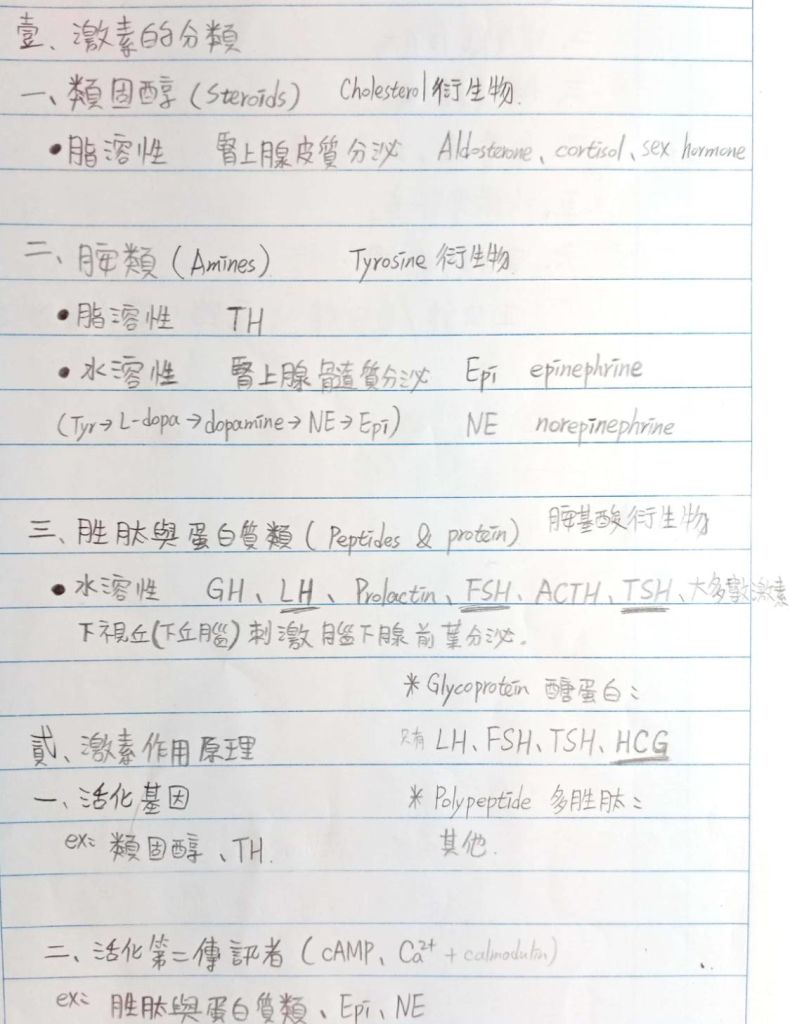 壹、激素的分類
一、類固醇 (Steroids) Cholesterol 衍生物.
•脂溶性 腎上腺皮質分泌 Aldosterone、cortisol、sex hormone
二、胺類 (Amines). Tyrosine 衍生物.
•脂溶性 TH
•水溶性 腎上腺髓質分泌 Epi epinephrine
(Tyr→L-dopa→dopamine→NE→Epi) NE norepinephrine
三、胜肽與蛋白質類 (Peptides & protein) 胺基酸衍生物
•水溶性 GH、LH、Prolactin、FSH、ACTH、TSH、大多數激素
下視丘(下丘腦)刺激腦下腺前葉分泌.
*Glycoprotein 醣蛋白:
貳、激素作用原理 只有 LH、FSH、TSH、HCG
一、活化基因 *Polypeptide 多胜肽:
ex: 類固醇、TH. 其他.
二、活化第二傳訊者 (cAMP、Ca²⁺ + calmodulin)
ex: 胜肽與蛋白質類、Epi、NE